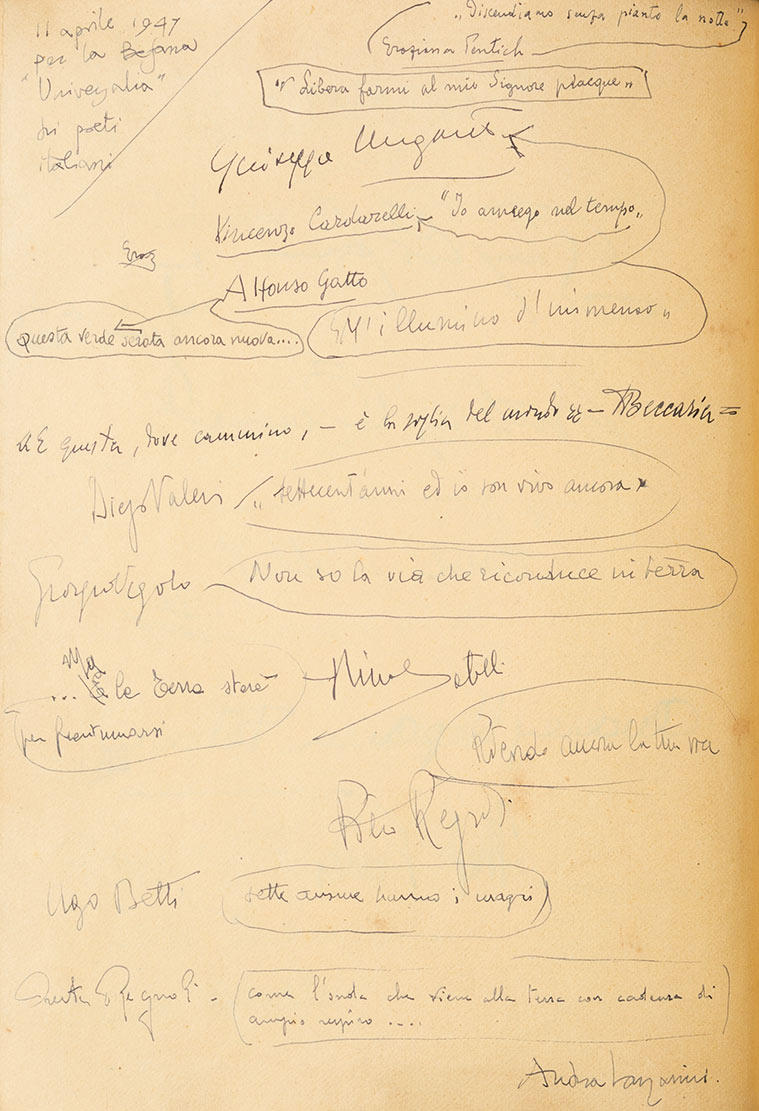 11 aprile 1947
per la Befana
"Universalia"
dei poeti
italiani
"Discendiamo senza pianto la notte"
Erozinsa Pentich
"Libera farmi al mio Signore piacque"
Giuseppe Ungaretti
Vincenzo Cardarelli - "Io annego nel tempo"
Eros
Alfonso Gatto
questa verde serata ancora nuova....
"M'illumino d'immenso"
"E questa, dove cammino, - è la soglia del mondo" - Beccaria =
Diego Valeri - "settecent'anni ed io son vivo ancora"
Giorgio Vigolo - Non so la via che riconduce in terra
... la Terra starà
per frantumarsi
Attendo ancora la tua
Ugo Betti sette anime hanno i magri
Regnoli - (come l'onda che viene alla terra con cadenza di
ampio respiro ....
Andrea Lanzarini.